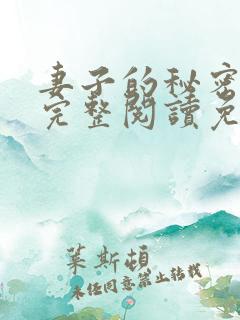 妻子的秘密
完整閱讀免
葉斯頓
未經同意禁止轉載